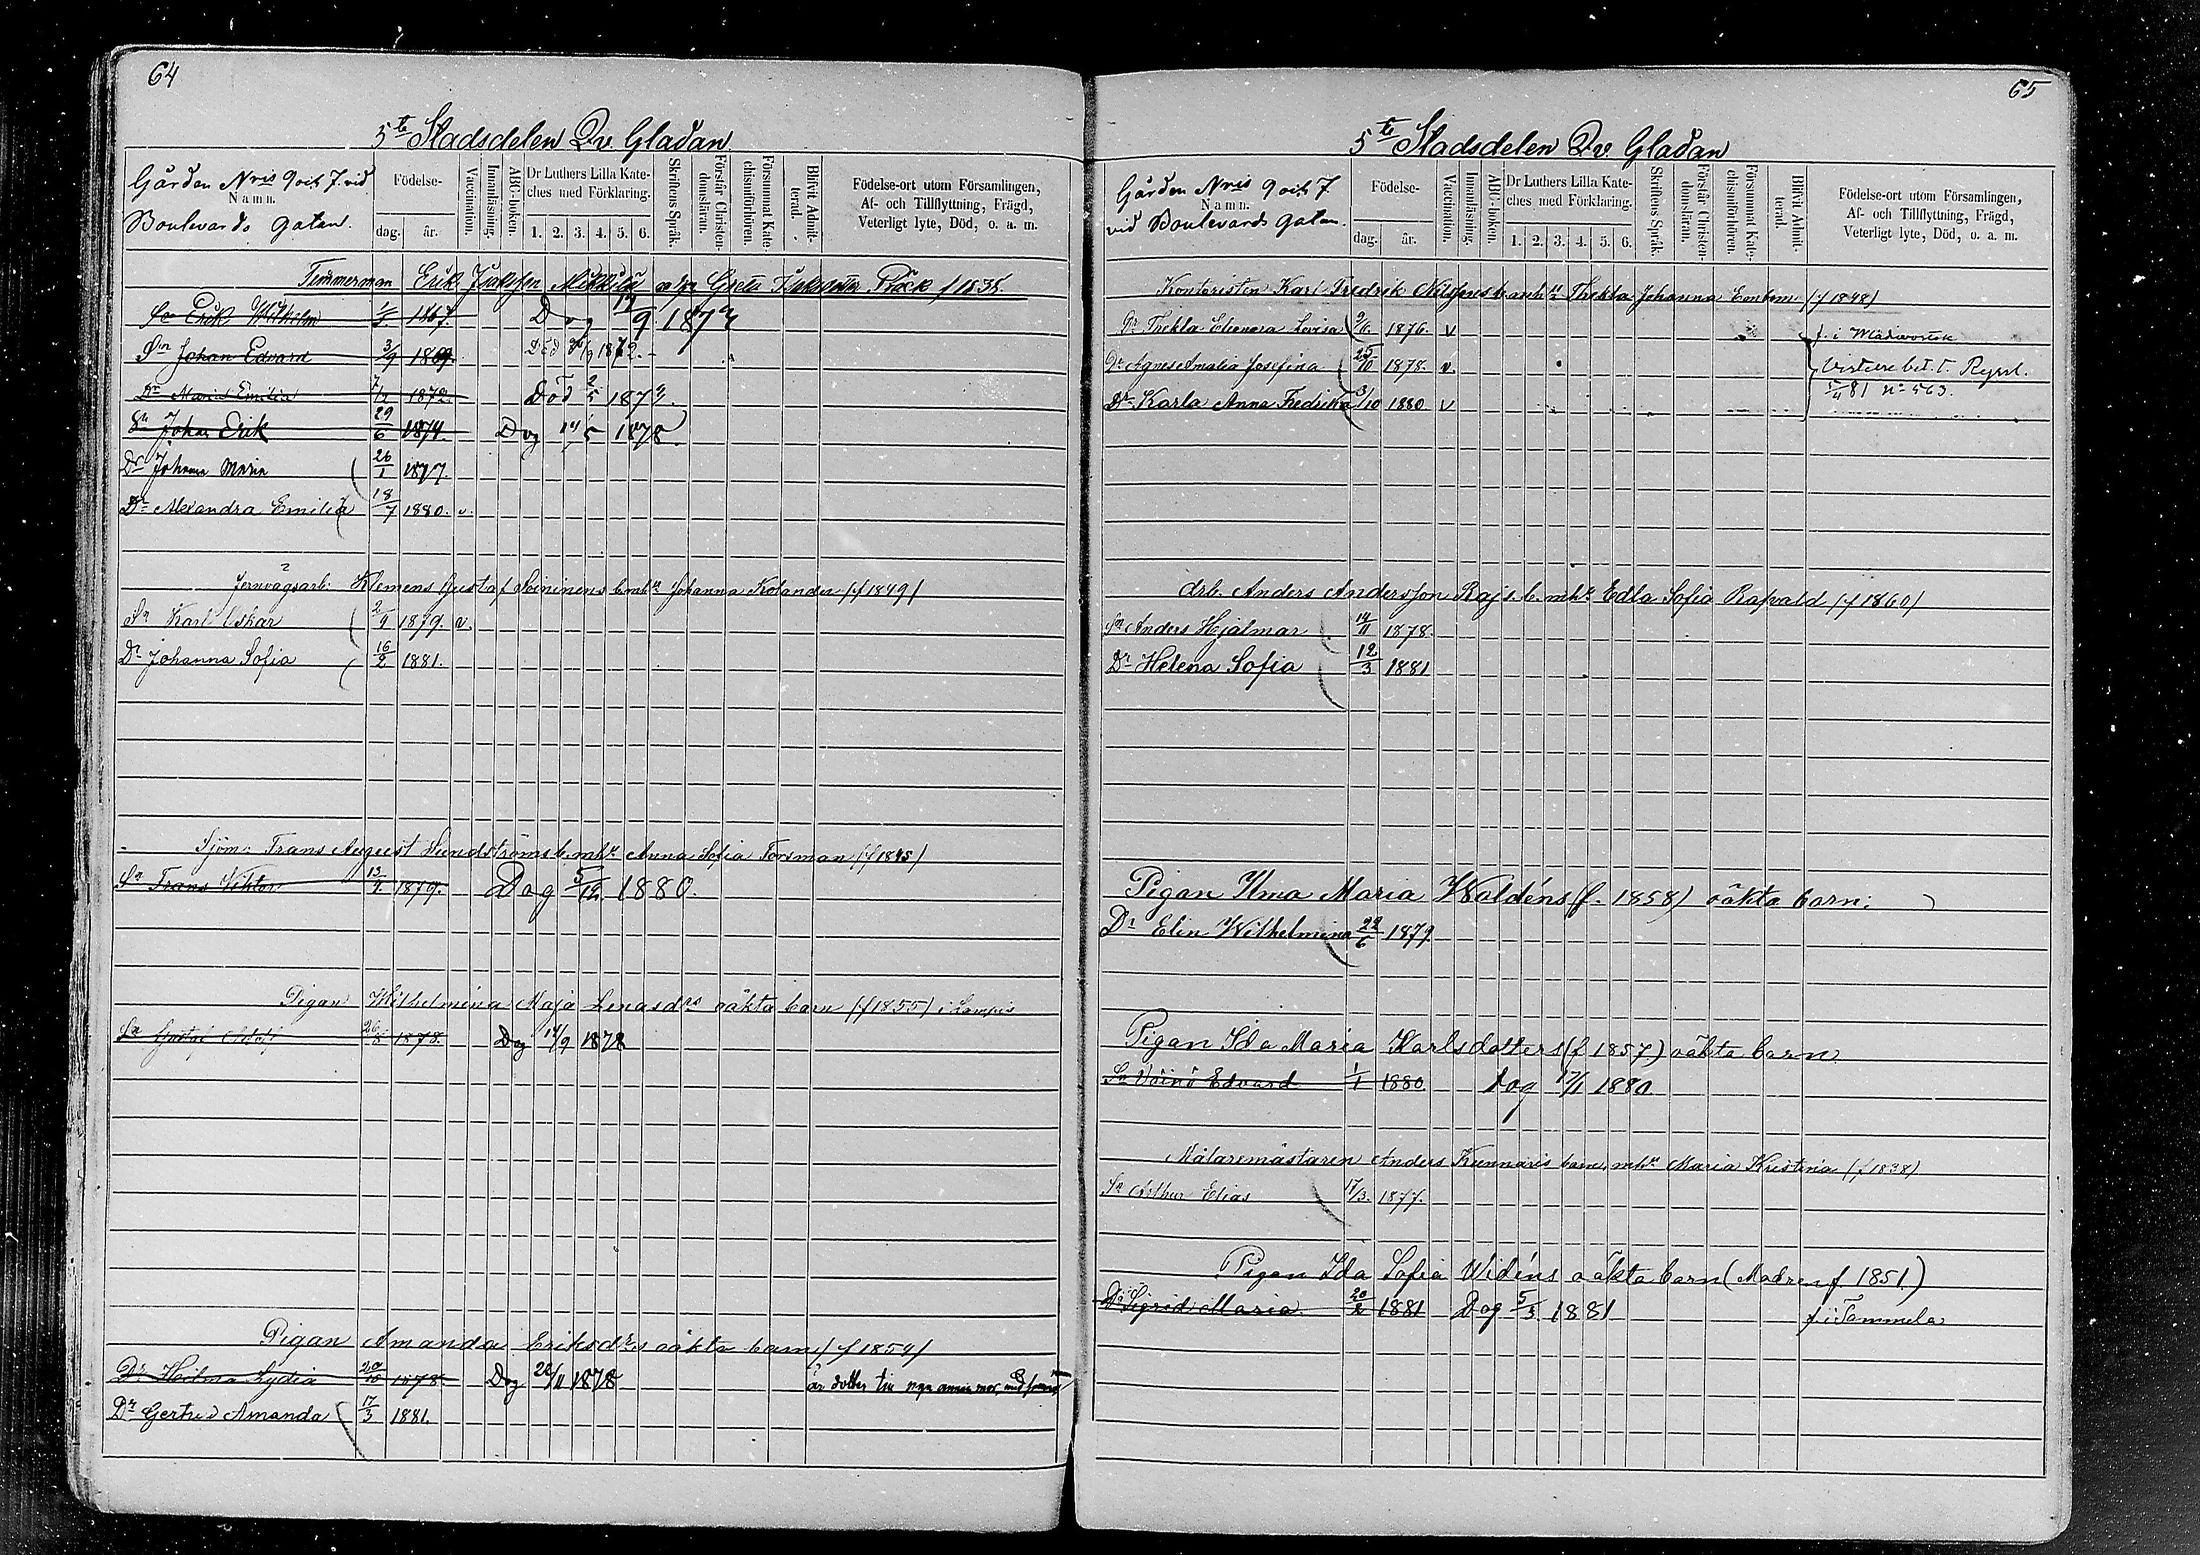 64
5te Stadsdelen Qv. Gladan
Gården Nris 9 och 7. vid
Namn.
Boulevards gatan.
Födelse-
dag. år.
Vaccination.
Innanläsning.
ABC-boken.
Dr Luthers Lilla Kate-
ches med Förklaring.
1. 2. 3. 4. 5. 6.
Skriftens Språk.
Förstår Christen-
domsläran.
Försummat Kate-
chismiförhören.
Blifvit Admit-
terad.
Födelse-ort utom Församlingen,
Af- och Tillflyttning, Frägd,
Veterligt lyte, Död, o. a. m.
Timmerman Erik f 1835.
Sn Erik Wilhelm 1/3 1867. Dog 9 1873
Sn Johan Edvard 3/9 1869 Död 1872.
Dr Maria Emilia 7/12 1872. Död 2/5 1873.
Sn Johan Erik 29/6 1874. Dog 14/5 1878.
Dr Johanna Maria 26/1 1877.
Dr Alexandra Emilia 18/7 1880. v.
Jernvägsarb: Klemens Gustaf Soininens b. mhu Johanna Kolander (f 1849)
Sn Karl Oskar 2/9 1879. v.
Dr Johanna Sofia 16/2 1881.
Sjöm: Frans August Sundströms b. mhu Anna Sofia Forsman (f 1845)
Sn Frans Viktor 13/9 1879. Dog 5/12 1880.
Pigan Wilhelmina Maja Lenasdrs oäkta barn (f 1855) i Lampis
Sn Gustaf Adolf 26/8 1878. Dog 14/9 1878
Pigan Amanda Eriksdrs oäkta barn (f 1859)
Dr Hilma Lydia 20/10 1878. Dog 20/11 1878 är dotter till
Dr Gertrud Amanda 17/3 1881.
65
5te Stadsdelen Qv. Gladan
Gården Nris 9 och 7
Namn.
vid Boulevards gatan.
Födelse-
dag. år.
Vaccination.
Innanläsning.
ABC-boken.
Dr Luthers Lilla Kate-
ches med Förklaring.
1. 2. 3. 4. 5. 6.
Skriftens Språk.
Förstår Christen-
domsläran.
Försummat Kate-
chismiförhören.
Blifvit Admit-
terad.
Födelse-ort utom Församlingen,
Af- och Tillflyttning, Frägd,
Veterligt lyte, Död, o. a. m.
Kontoristen Karl Fredrik b. mhu Thekla Johanna Enbom (f 1848)
Dr Thekla Eleonora Lovisa 9/6 1876. v f. i Wladiwostok
Dr Agnes Amalia Josefina 25/10 1878. v. bet. t. Ryssl.
Dr Karla Anna Fredrika 3/10 1880 v 81 no 563.
Arb. Anders Andersson Rajs b. mhu Edla Sofia (f 1860)
Sn Anders Hjalmar 14/11 1878.
Dr Helena Sofia 12/3 1881
Pigan Ilma Maria Waldéns (f. 1858) oäkta barn:
Dr Elin Wilhelmina 22/6 1879
Pigan Ida Maria Karlsdotters (f 1857) oäkta barn
Sn Väinö Edvard 1/1 1880 Dog 17/1 1880.
Målaremästaren Anders Kunnaris barn, mhu Maria Kristina (f 1838)
Sn Arthur Elias 17/3. 1877.
Pigan Ida Sofia Widéns oäkta barn (Modren f 1851.)
Dr Sigrid Maria 20/2 1881 Dog 5/3 1881 f. i Tammela